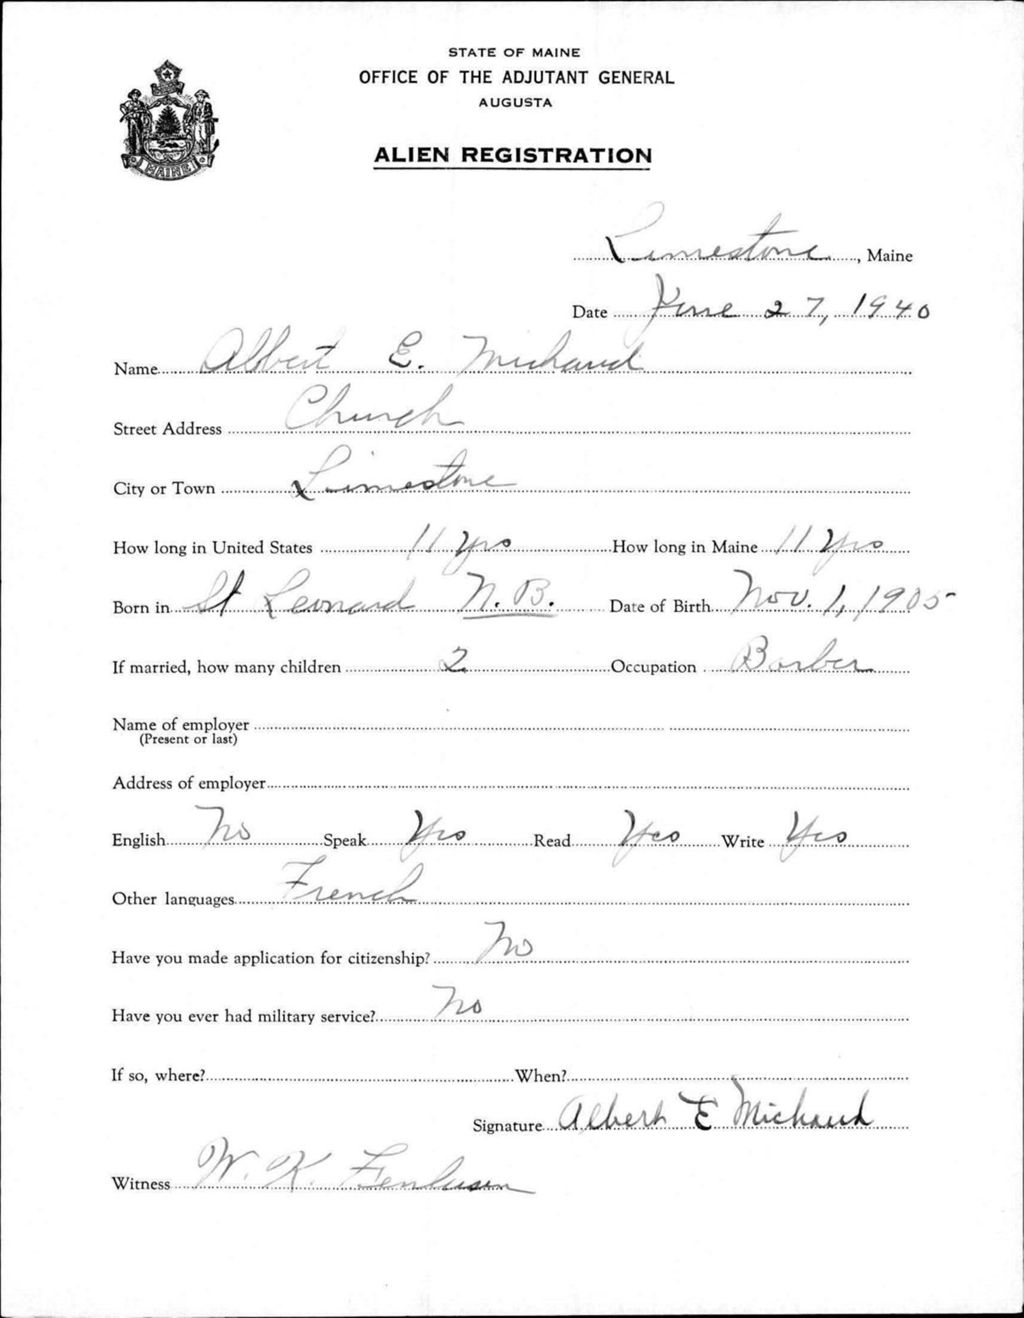 STATE OF MAINE
OFFICE OF THE ADJUTANT GENERAL
AUGUSTA
ALIEN REGISTRATION
MAINE
Limestone, Maine
Date June 27, 1940
Name Albert E. Michaud
Street Address Church
City or Town Limestone
How long in United States 11 yrs How long in Maine 11 yrs
Born in St Leonard N.B. Date of Birth Nov. 1, 1905
If married, how many children 2 Occupation Barber
Name of employer
(Present or last)
Address of employer
English No Speak Yes Read Yes Write Yes
Other languages French
Have you made application for citizenship? No
Have you ever had military service? No
If so, where? When?
Signature Albert E Michaud
Witness W. K.